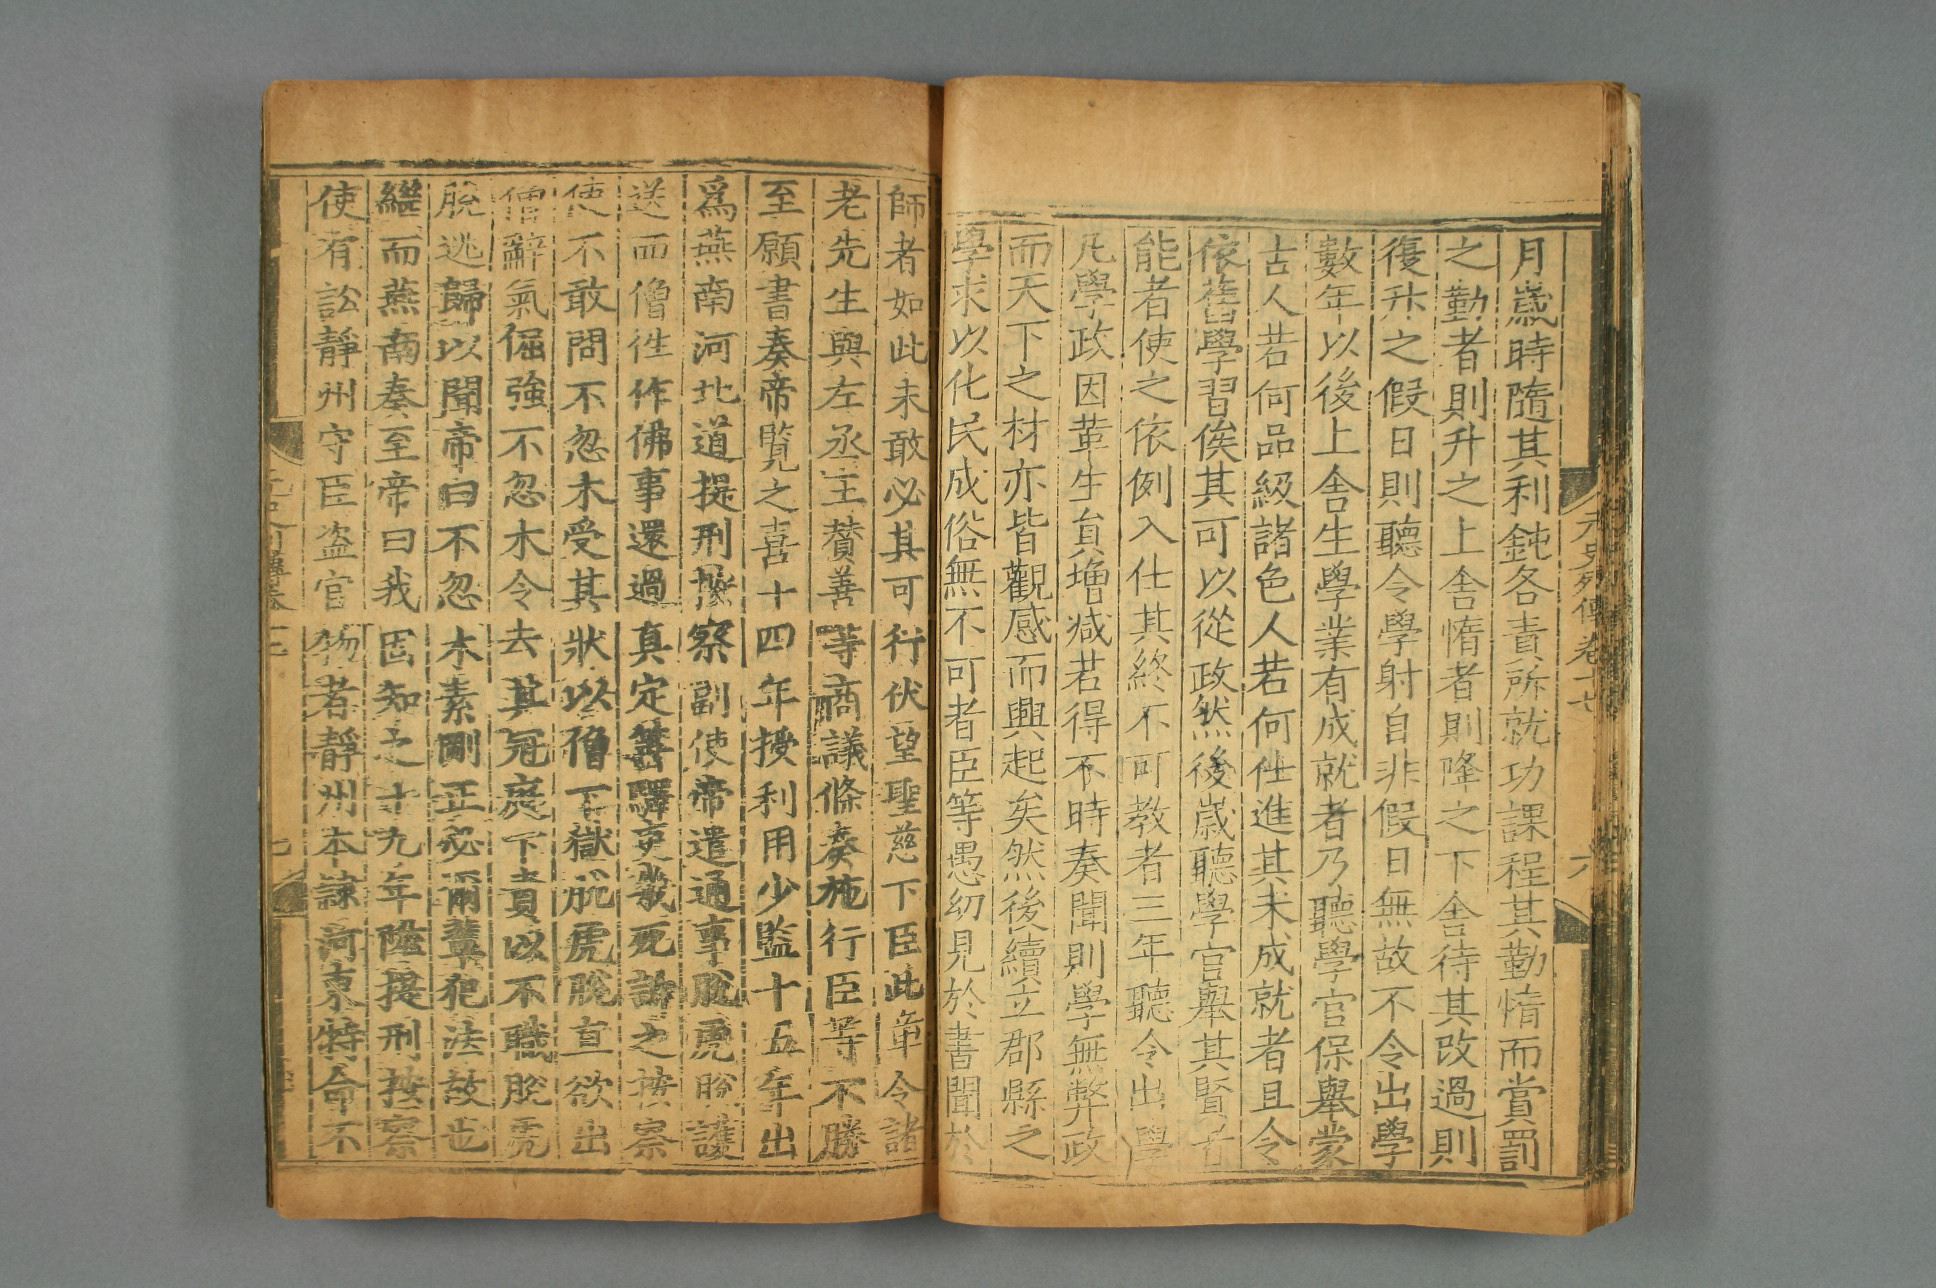 元史列傳卷十七
六
月歲時隨其利鈍各責所就功課程其勤惰而賞罰
之勤者則升之上舍惰者則降之下舍待其改過則
復升之假日則聽令學射自非假日無故不令出學
數年以後上舍生學業有成就者乃聽學官保舉蒙
古人若何品級諸色人若何仕進其未成就者且令
依舊學習俟其可以從政然後歲聽學官舉其賢者
能者使之依例入仕其終不可教者三年聽令出學
凡學政因革生員增减若得不時奏聞則學無弊政
而天下之材亦皆觀感而興起矣然後續立郡縣之
學求以化民成俗無不可者臣等愚幼見於書聞於
師者如此未敢必其可行伏望聖慈下臣此章令諸
老先生與左丞王贊善等商議條奏施行臣等不勝
至願書奏帝覽之喜十四年授利用少監十五年出
爲燕南河北道提刑按察副使帝遣通事脫虎脫護
送西僧徃作佛事還過真定箠驛吏幾死訴之按察
使不敢問不忽木受其狀以僧下獄脫虎脫直欲出
僧辭氣倔強不忽木令去其冠庭下責以不職脫虎
脫逃歸以聞帝曰不忽木素剛正必爾輩犯法故也
繼而燕南奏至帝曰我固知之十九年陞提刑按察
使有訟靜州守臣盜官物者靜州本隸河東特命不